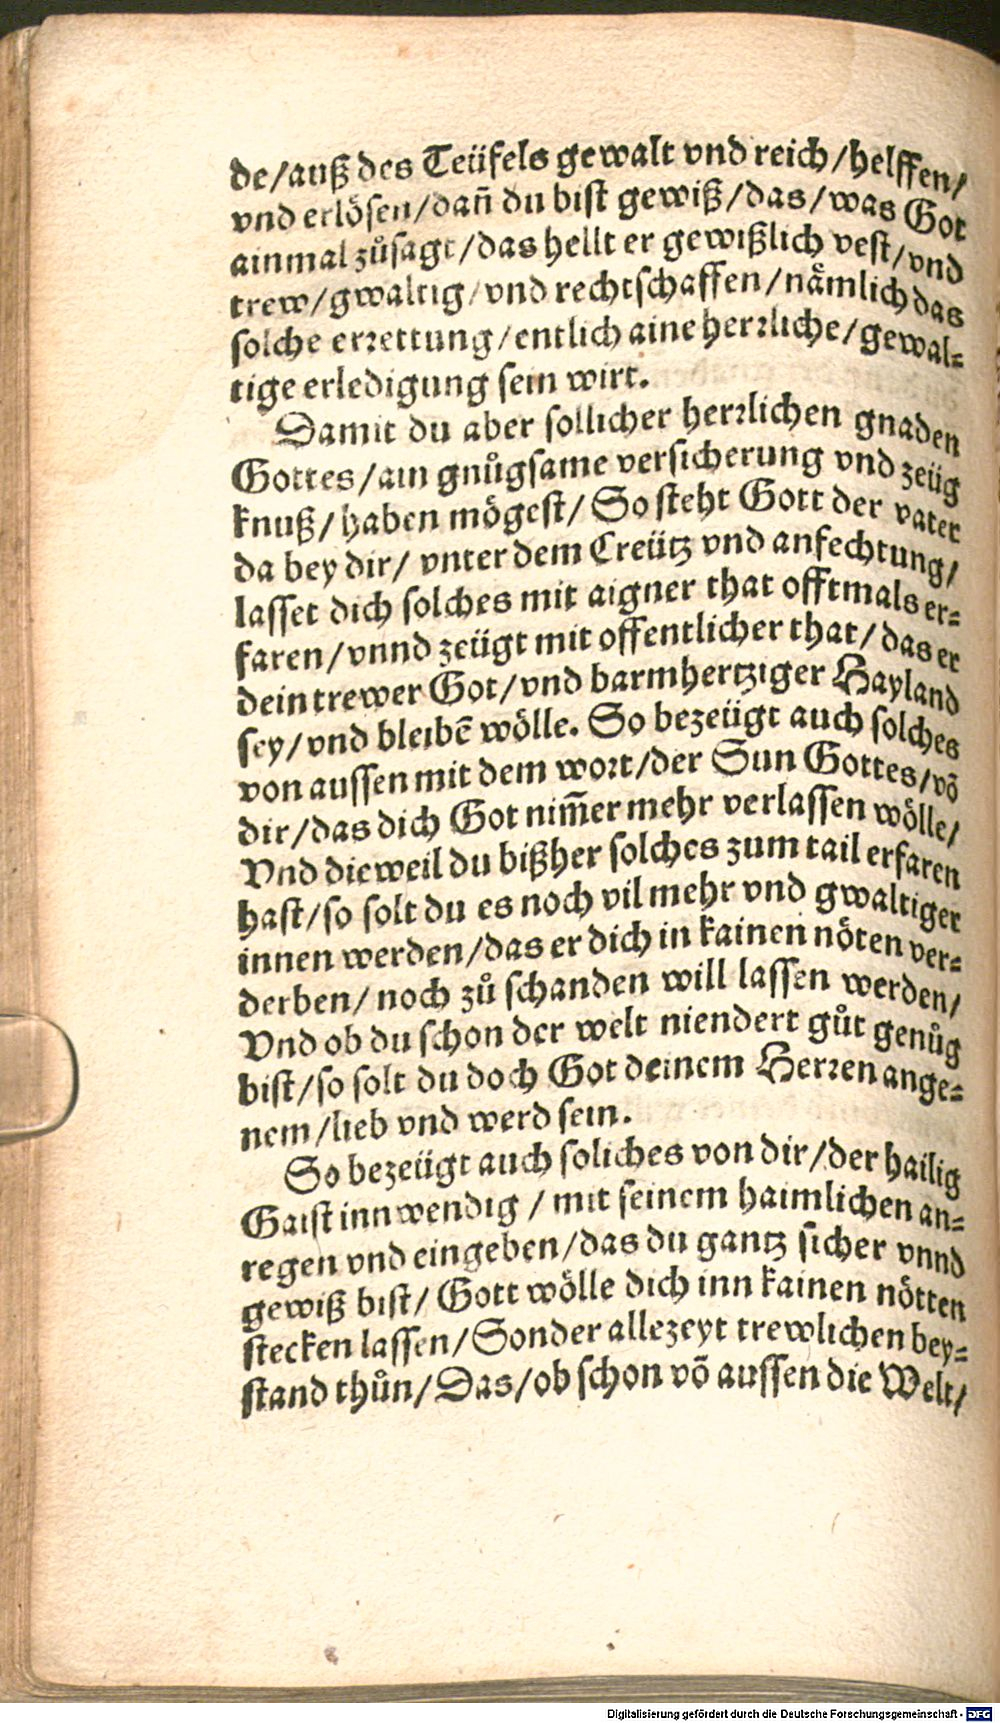 de/auß des Teüfels gewalt vnd reich/helffen/
vnd erlösen/dañ du bist gewiß/das/was Got
ainmal zůsagt/das hellt er gewißlich vest/vnd
trew/gwaltig/vnd rechtschaffen/nämlich das
solche errettung/entlich aine herrliche/gewal-
tige erledigung sein wirt.
Damit du aber sollicher herrlichen gnaden
Gottes/ain gnůgsame versicherung vnd zeüg
knuß/haben mögest/ So steht Gott der vater
da bey dir/ vnter dem Creütz vnd anfechtung/
lasset dich solches mit aigner that offtmals er-
faren/vnnd zeügt mit offentlicher that/das er
dein trewer Got/vnd barmhertziger Hayland
sey/vnd bleibē wölle. So bezeügt auch solches
von aussen mit dem wort/der Sun Gottes/võ
dir/das dich Got nim̃er mehr verlassen wölle/
Vnd dieweil du bißher solches zum tail erfaren
hast/so solt du es noch vil mehr vnd gwaltiger
innen werden/das er dich in kainen nöten ver-
derben/ noch zů schanden will lassen werden/
Vnd ob du schon der welt niendert gůt genůg
bist/so solt du doch Got deinem Herren ange-
nem/lieb vnd werd sein.
So bezeügt auch soliches von dir/der hailig
Gaist innwendig / mit seinem haimlichen an-
regen vnd eingeben/das du gantz sicher vnnd
gewiß bist/ Gott wölle dich inn kainen nötten
stecken lassen/Sonder allezeyt trewlichen bey-
stand thůn/Das/ob schon võ aussen die Welt/
Digitalisierung gefördert durch die Deutsche Forschungsgemeinschaft - DFG